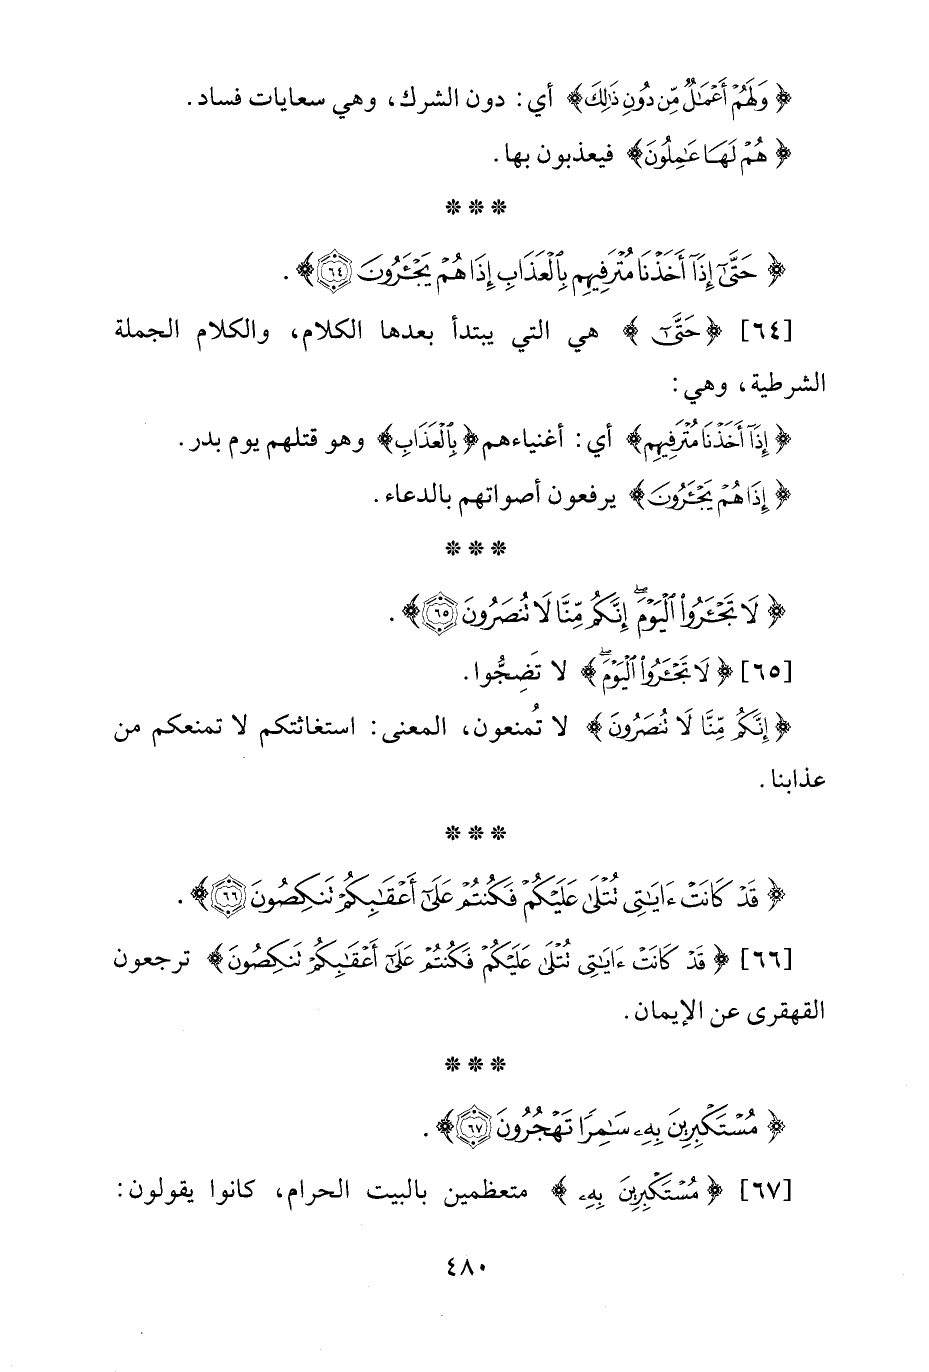 ﴿ وَلَهُمْ أَعْمَـٰلٌ مِّن دُونِ ذَٰلِكَ﴾ أي: دون الشرك، وهي سعايات فساد.
﴿ هُمْ لَهَا عَـٰمِلُونَ﴾ فيعذبون بها.
* * *
﴿ حَتَّىٰٓ إِذَآ أَخَذْنَا مُتْرَفِيهِم بِٱلْعَذَابِ إِذَا هُمْ يَجْـَٔرُونَ ٦٤﴾.
[٦٤] ﴿ حَتَّىٰٓ ﴾ هي التي يبتدأ بعدها الكلام، والكلام الجملة
الشرطية، وهي:
﴿ إِذَآ أَخَذْنَا مُتْرَفِيهِم﴾ أي: أغنياءهم ﴿بِٱلْعَذَابِ﴾ وهو قتلهم يوم بدر.
﴿ إِذَا هُمْ يَجْـَٔرُونَ﴾ يرفعون أصواتهم بالدعاء.
* * *
﴿ لَا تَجْـَٔرُوا۟ ٱلْيَوْمَ ۖ إِنَّكُم مِّنَّا لَا تُنصَرُونَ ٦٥﴾.
[٦٥] ﴿ لَا تَجْـَٔرُوا۟ ٱلْيَوْمَ ۖ﴾ لا تَضِجُّوا.
﴿ إِنَّكُم مِّنَّا لَا تُنصَرُونَ ﴾ لا تُمنعون، المعنى: استغاثتكم لا تمنعكم من
عذابنا.
* * *
﴿ قَدْ كَانَتْ ءَايَـٰتِى تُتْلَىٰ عَلَيْكُمْ فَكُنتُمْ عَلَىٰٓ أَعْقَـٰبِكُمْ تَنكِصُونَ ٦٦﴾.
[٦٦] ﴿ قَدْ كَانَتْ ءَايَـٰتِى تُتْلَىٰ عَلَيْكُمْ فَكُنتُمْ عَلَىٰٓ أَعْقَـٰبِكُمْ تَنكِصُونَ﴾ ترجعون
القهقرى عن الإيمان.
* * *
﴿ مُسْتَكْبِرِينَ بِهِۦ سَـٰمِرًا تَهْجُرُونَ ٦٧﴾.
[٦٧] ﴿ مُسْتَكْبِرِينَ بِهِۦ ﴾ متعظمين بالبيت الحرام، كانوا يقولون:
٤٨٠